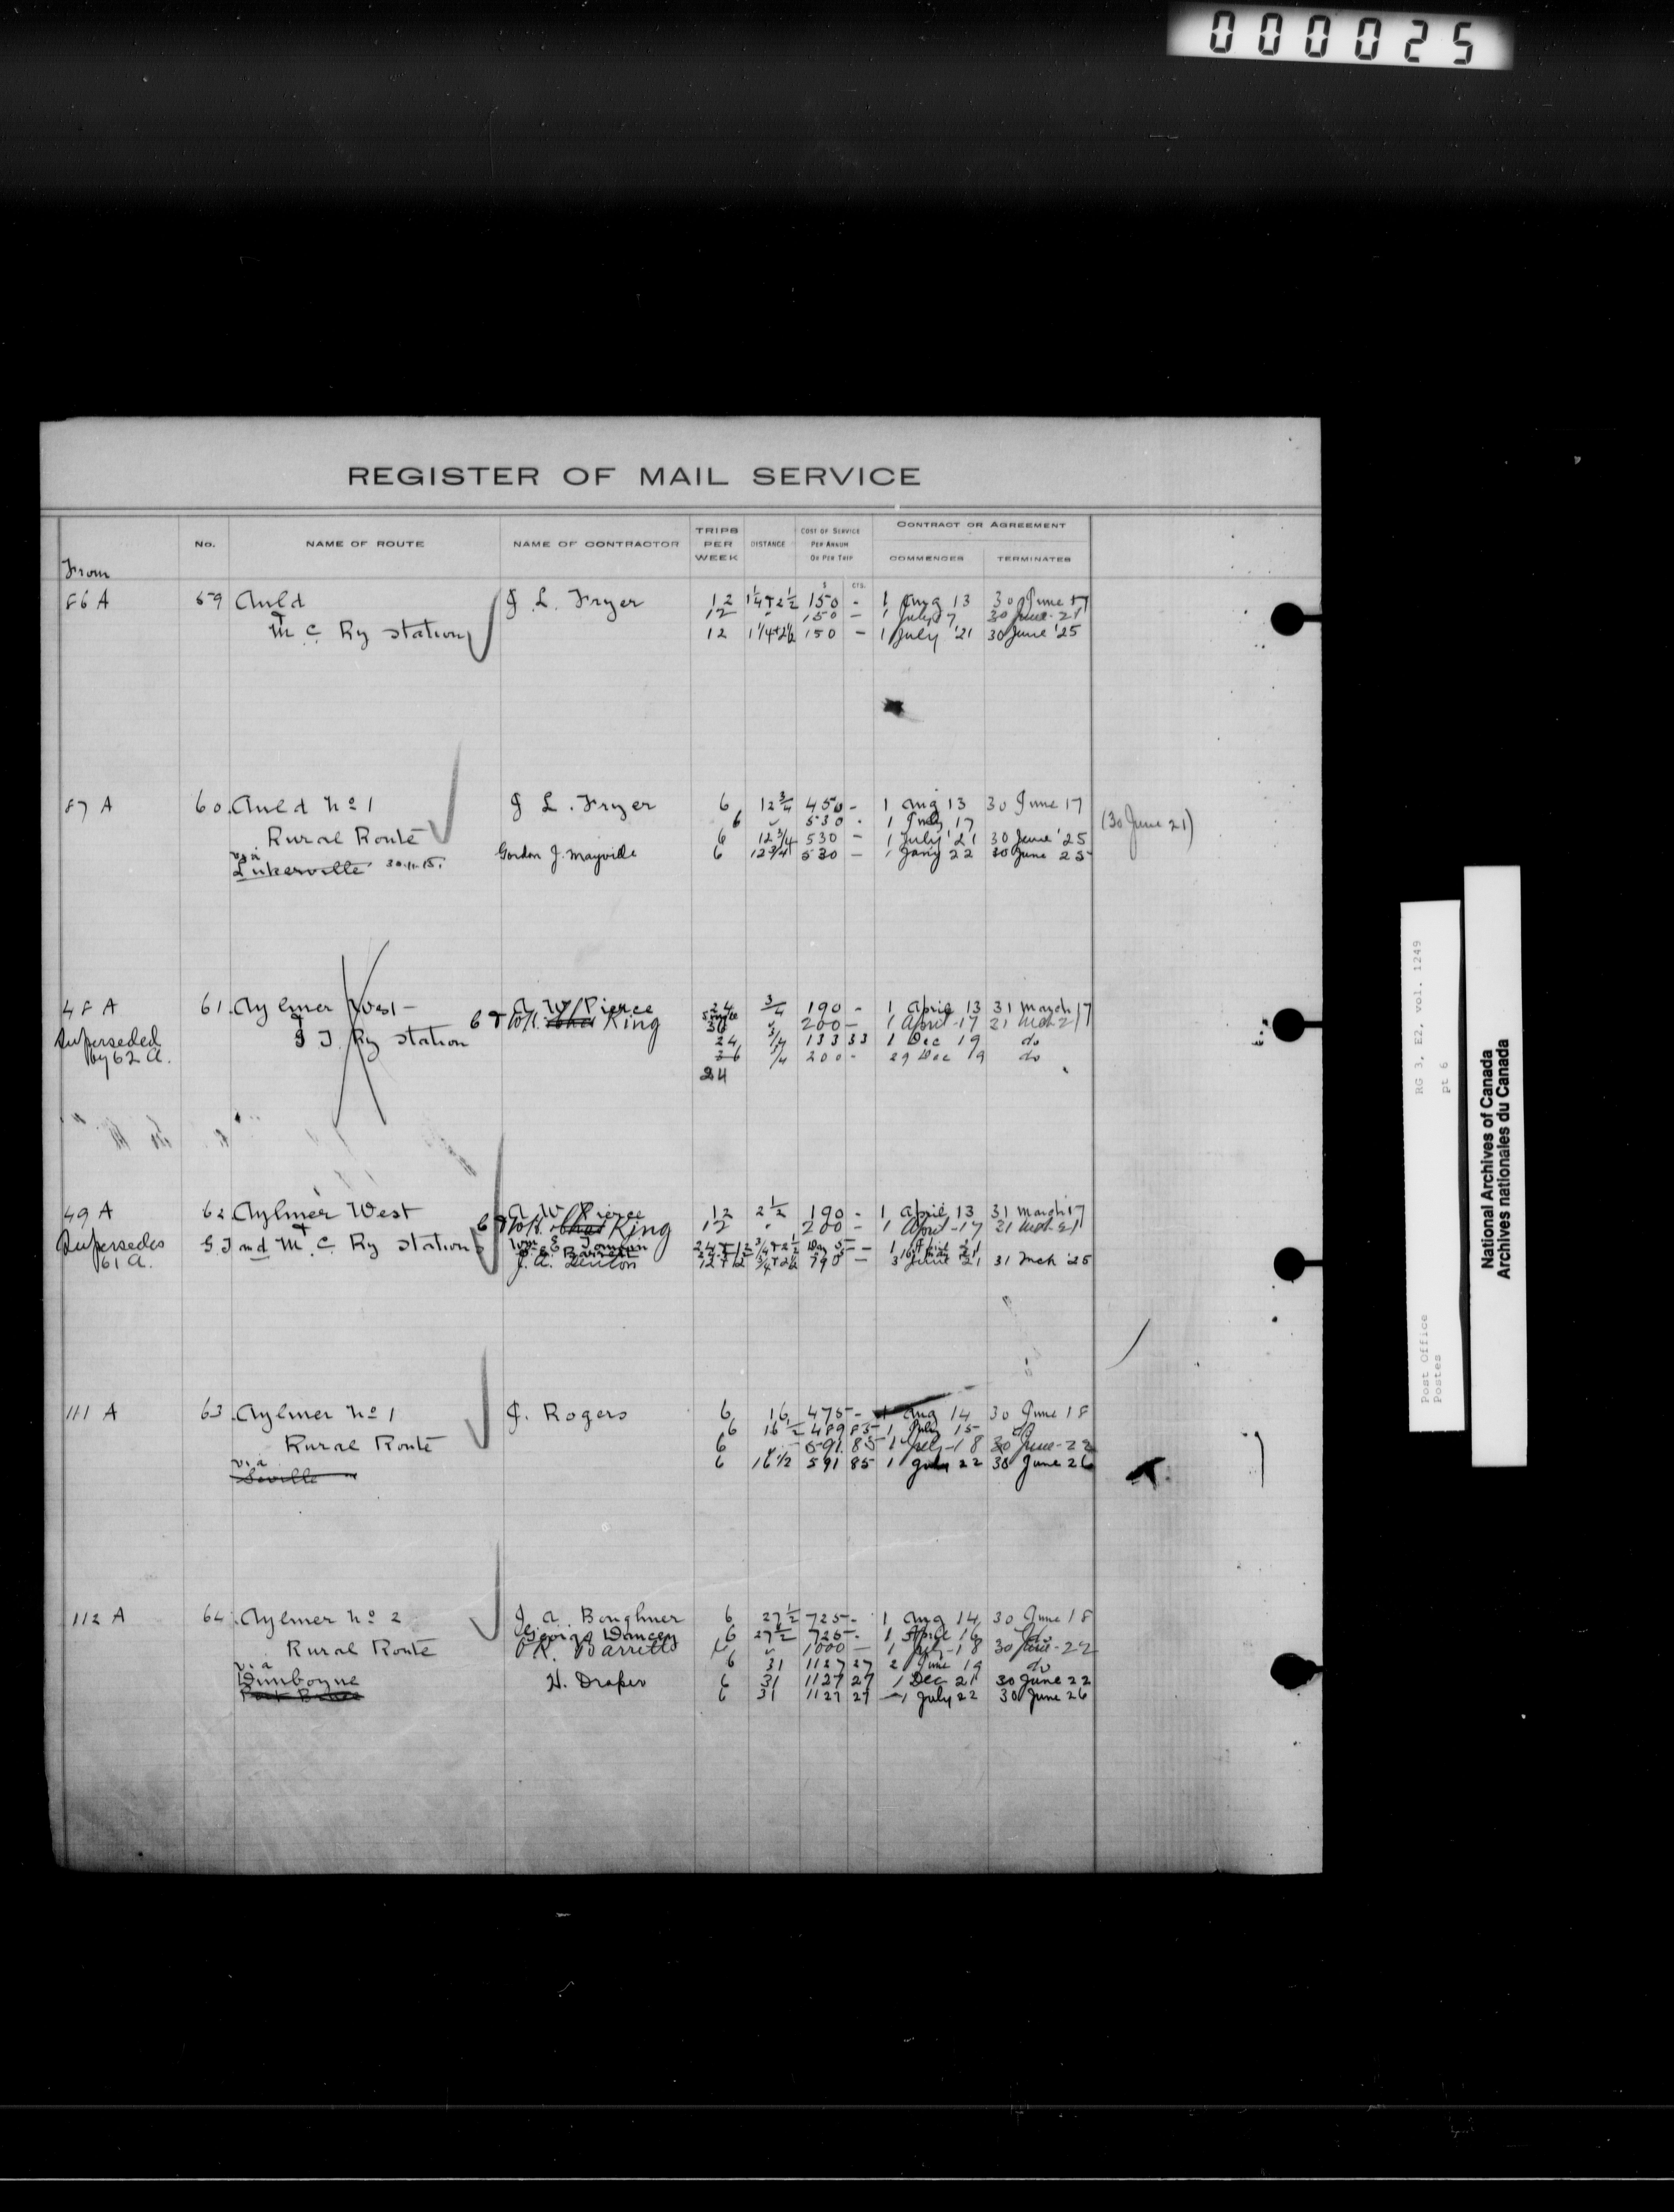 000025
REGISTER OF MAIL SERVICE
From No. NAME OF ROUTE NAME OF CONTRACTOR TRIPS PER WEEK DISTANCE COST OF SERVICE PER ANNUM OR PER TRIP CONTRACT OR AGREEMENT
COMMENCES TERMINATES
$ CTS.
86 A 59 Auld J. L. Fryer 12 1¼+2½ 150 - 1 Aug 13 30 June 17
12 " 150 - 1 July 17 30 June-21
+ M C Ry station 12 1¼+2½ 150 - 1 July '21 30 June '25
87 A 60. Auld No 1 J L. Fryer 6 12¾ 450 - 1 Aug 13 30 June 17
6 " 530 - 1 July 17 (30 June 21)
Rural Route 6 12¾ 530 - 1 July '21 30 June '25
via Gordon J. Mayville 6 12¾ 530 - 1 Jany 22 30 June 25
Lukerville 30.11.15.
48 A 61. Aylmer West - A W Pierce 24 ¾ 190 - 1 April 13 31 March 17
& W.H. King 36 " 200 - 1 April-17 31 Mch 21
Superseded G T. Ry station 24 ¾ 133 33 1 Dec 19 do
by 62 A. 36 ¾ 200 - 29 Dec 19 do
24
49 A 62. Aylmer West A W Pierce 12 2½ 190 - 1 April 13 31 March 17
+ W.H. King 12 " 200 - 1 April-17 31 Mch-21
Supersedes G.T and M. C. Ry stations
61 A. 12+12 ¾+2½ 790 - 3 June '21 31 Mch '25
111 A 63. Aylmer No 1 J. Rogers 6 16 475 - 1 Aug 14 30 June 18
6 16½ 489 83 1 July 15 do
Rural Route 6 " 591 85 1 July-18 30 June-22
via 6 16½ 591 85 1 July 22 30 June 26
Seville
112 A 64. Aylmer No 2 J. A. Boughner 6 27½ 725 - 1 Aug 14 30 June 18
George Dancey 6 27½ 725 - 1 April 16 do
Rural Route Barrett " " 1000 - 1 July-18 30 June-22
via 6 31 1127 27 2 June 19 do
Dunboyne H. Draper 6 31 1127 27 1 Dec 21 30 June 22
6 31 1127 27 1 July 22 30 June 26
RG 3, E2, vol. 1249
pt 6
Post Office
Postes
National Archives of Canada
Archives nationales du Canada